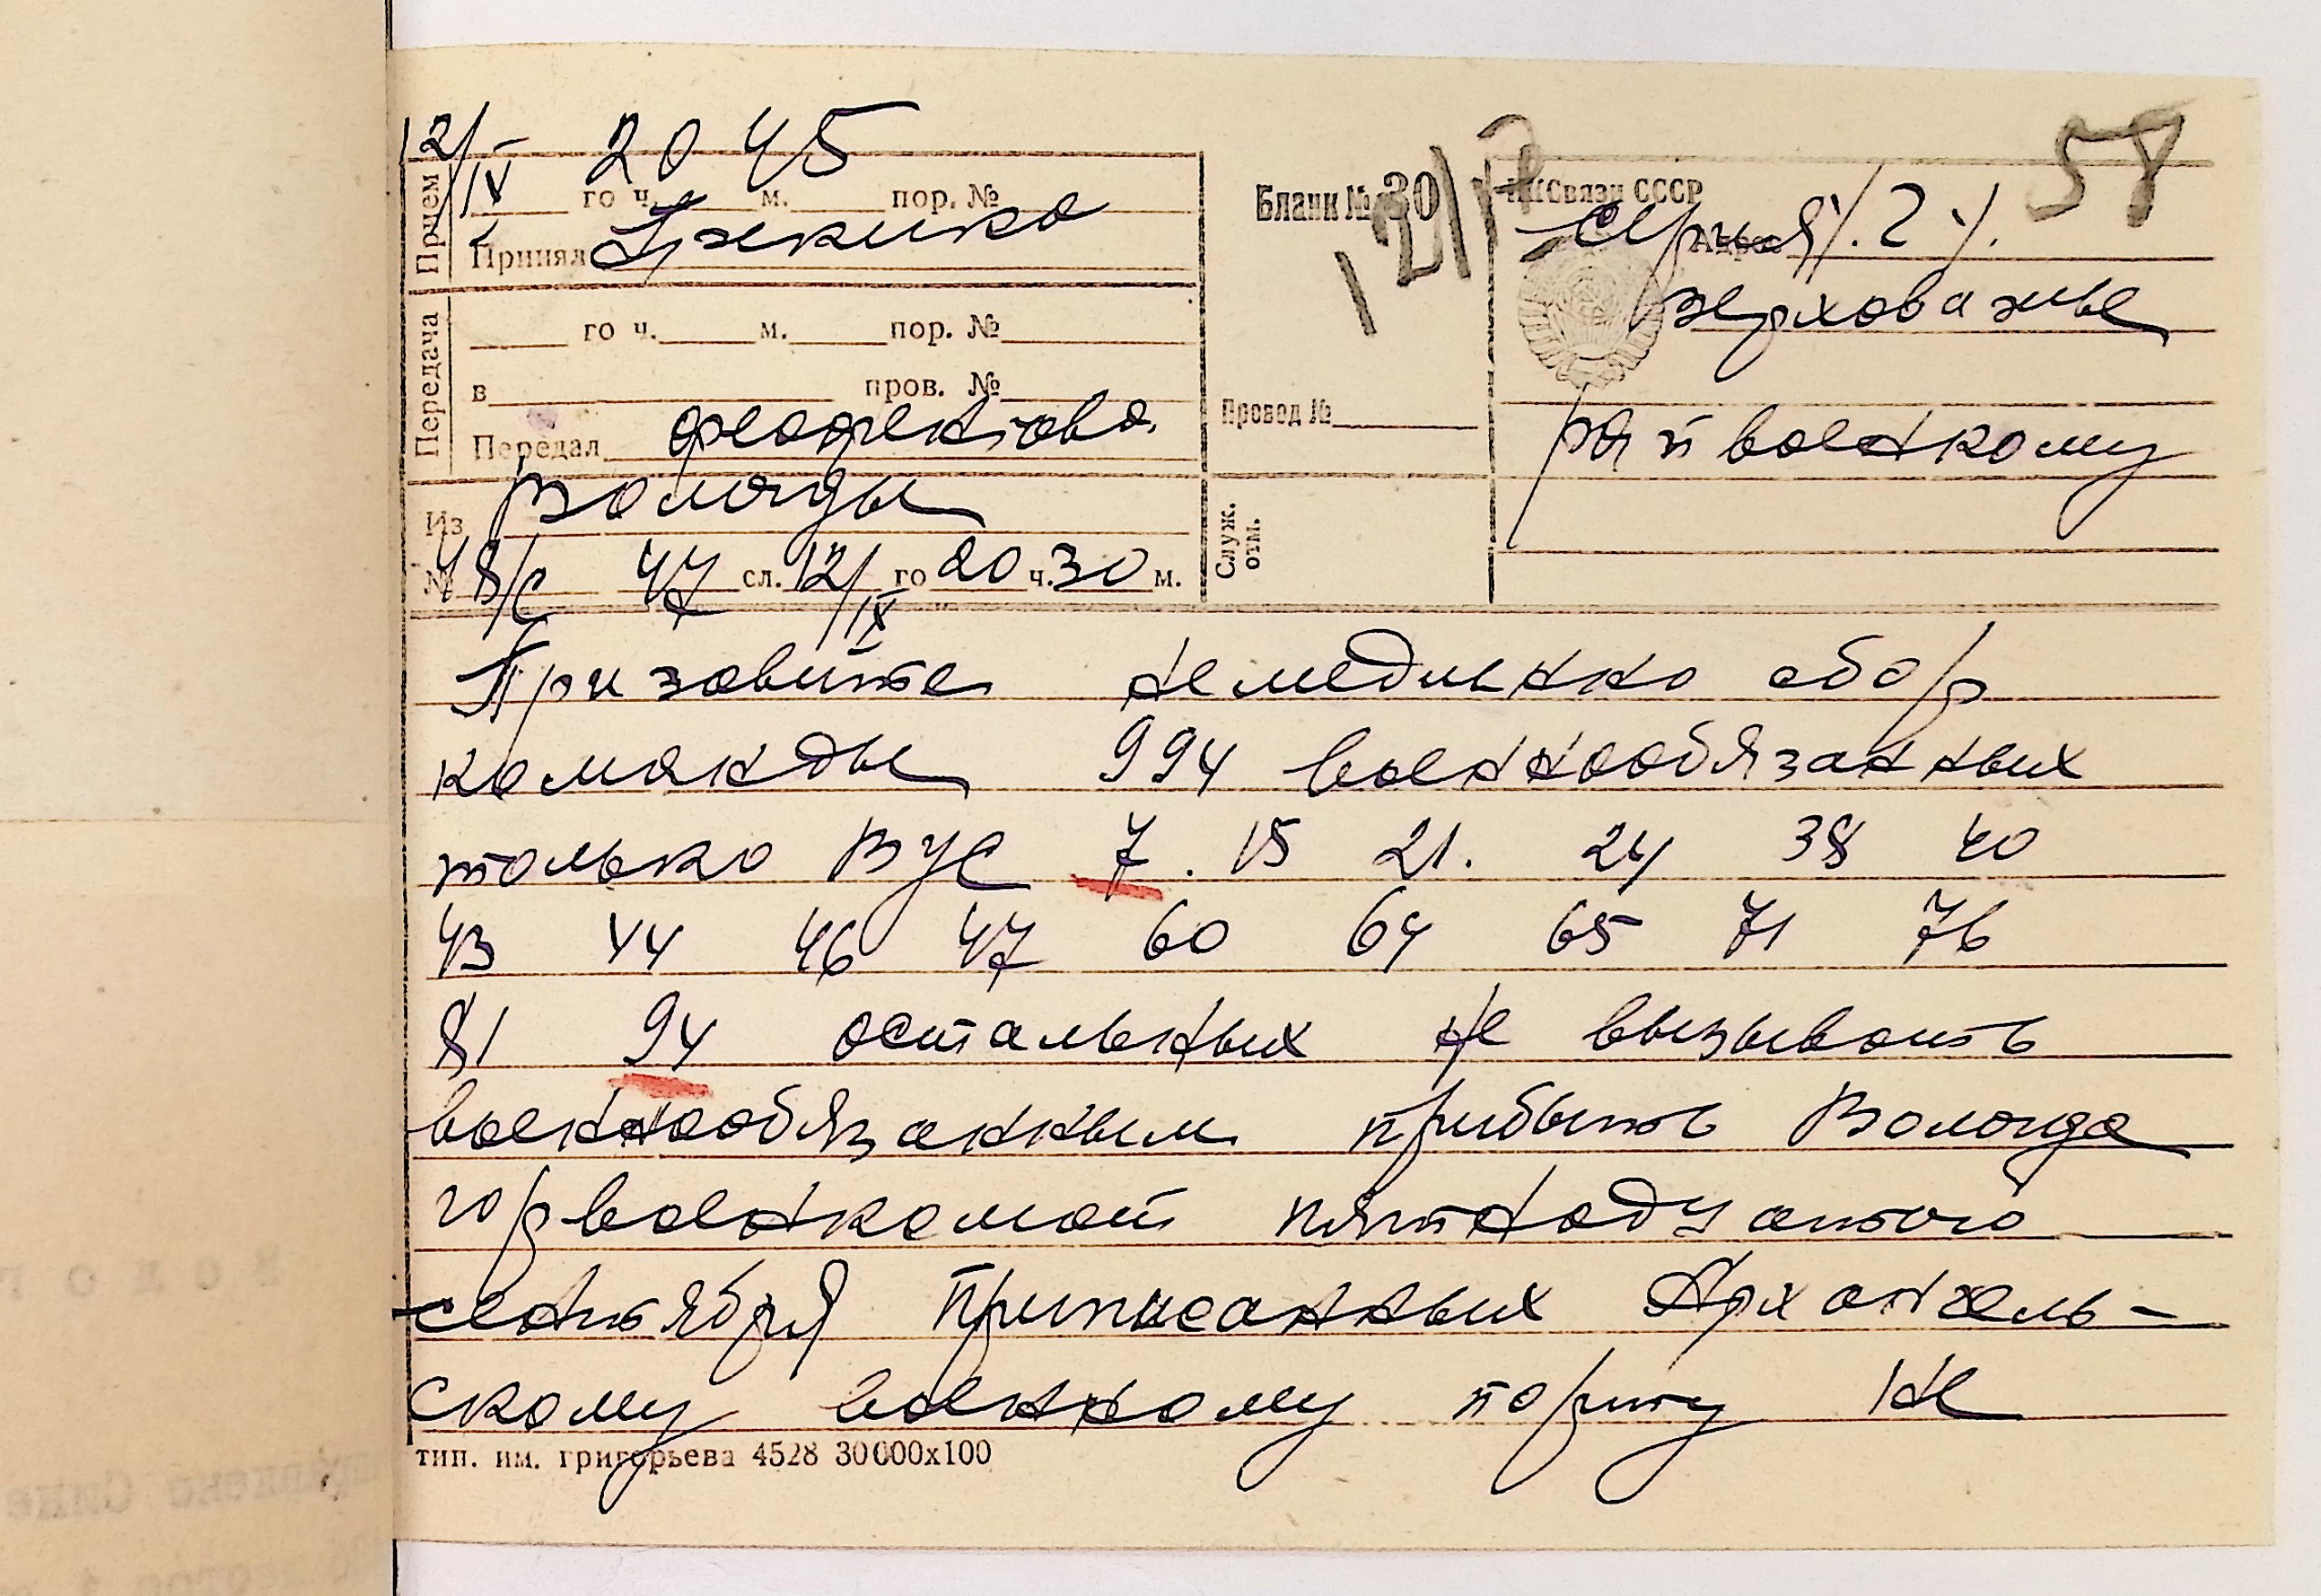 12/IX 20 45
Прием
го ч. м. пор. №
Принял
Передача
го ч. м. пор. №
в пров. №
Передал феофентова
Из Вологды
№ 48/с 47 сл. 12/IX го 20 ч. 30 м.
Бланк № 30
12/IX
Провод №
Служ. отм.
НКСвязи СССР
58
Адрес
верховажье
райвоенкому
Призовите немедленно сбор
команды 994 военнообязанных
только ВУС 7. 15 21. 24 38 40
43 44 46 47 60 64 65 71 76
81 94 остальных не вызывать
военнообязанным прибыть Вологда
горвоенкомат пятнадцатого
сентября Приписанных Архангель-
скому военному порту не
тип. им. григорьева 4528 30000х100